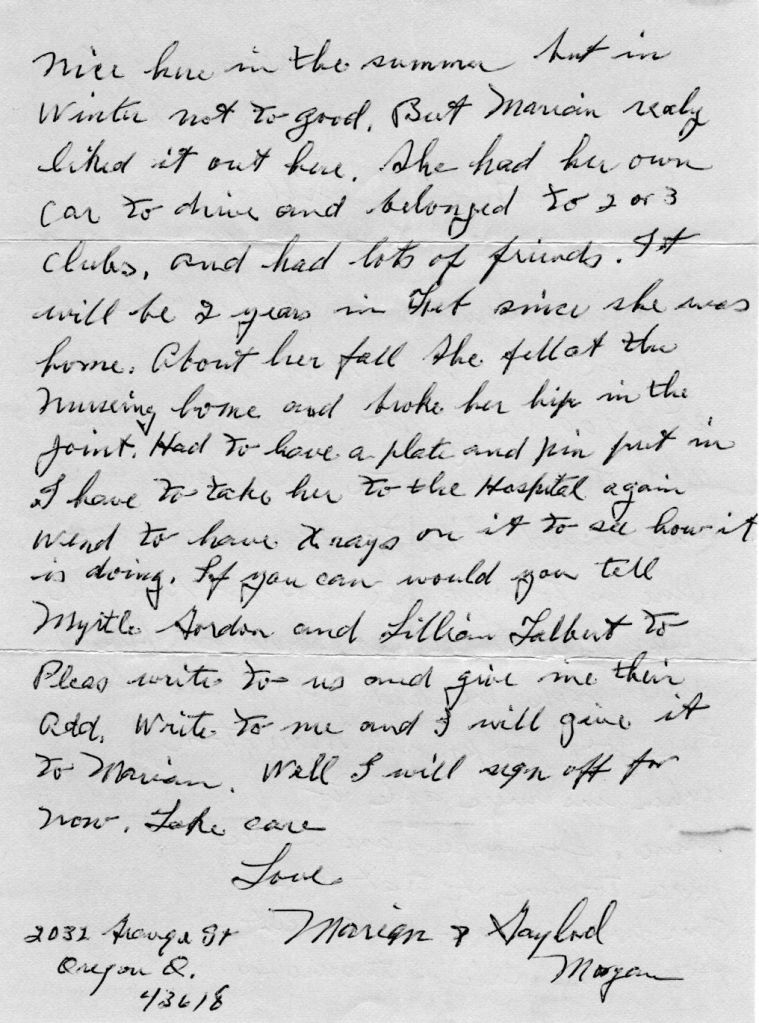 Nice here in the summer but in
Winter not to good. But Marian realy
liked it out here. She had her own
Car to drive and belonged to 2 or 3
Clubs, and had lots of friends. It
will be 2 years in Feb since she was
home. About her fall she fell at the
Nurseing home and broke her hip in the
joint. Had to have a plate and pin put in
I have to take her to the Hospital again
Wend to have X rays on it to see how it
is doing. If you can would you tell
Myrtle Gordon and Lillian Talbert to
Pleas write to us and give me their
Add. Write to me and I will give it
to Marian. Well I will sign off for
now. Take care
Love
Marian & Gaylord
Morgan
2032 Grange St
Oregon O.
43618